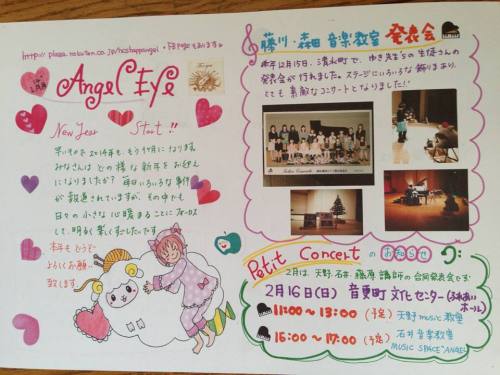 http://plaza.rakuten.co.jp/hoshappangel
FB pageもあります
Angel Eye
New Year Start!!
早いもので2014年も、もう1ヶ月になります。
みなさんはどの様な新年をお迎え
になりましたか？ 毎日いろいろな事件
が報道されていますが、その中でも
日々の小さな心暖まることにフォーカス
して、明るく楽しくすごしたいです
本年もどうぞ
よろしくお願い
致します。
藤川・森田 音楽教室 発表会
昨年12月15日、清水町で、ゆき先生の生徒さんの
発表会が行れました。ステージにいろいろな飾りもあり、
とても素敵なコンサートとなりました！
Petit Concert のお知らせ
2月は、天野、石井、藤原講師の合同発表会です
2月16日(日) 音更町文化センター(ふれあいホール)
11:00〜13:00 (予定) 天野music教室
15:00〜17:00 (予定) 石井音楽教室
MUSIC SPACE "ANGEL"